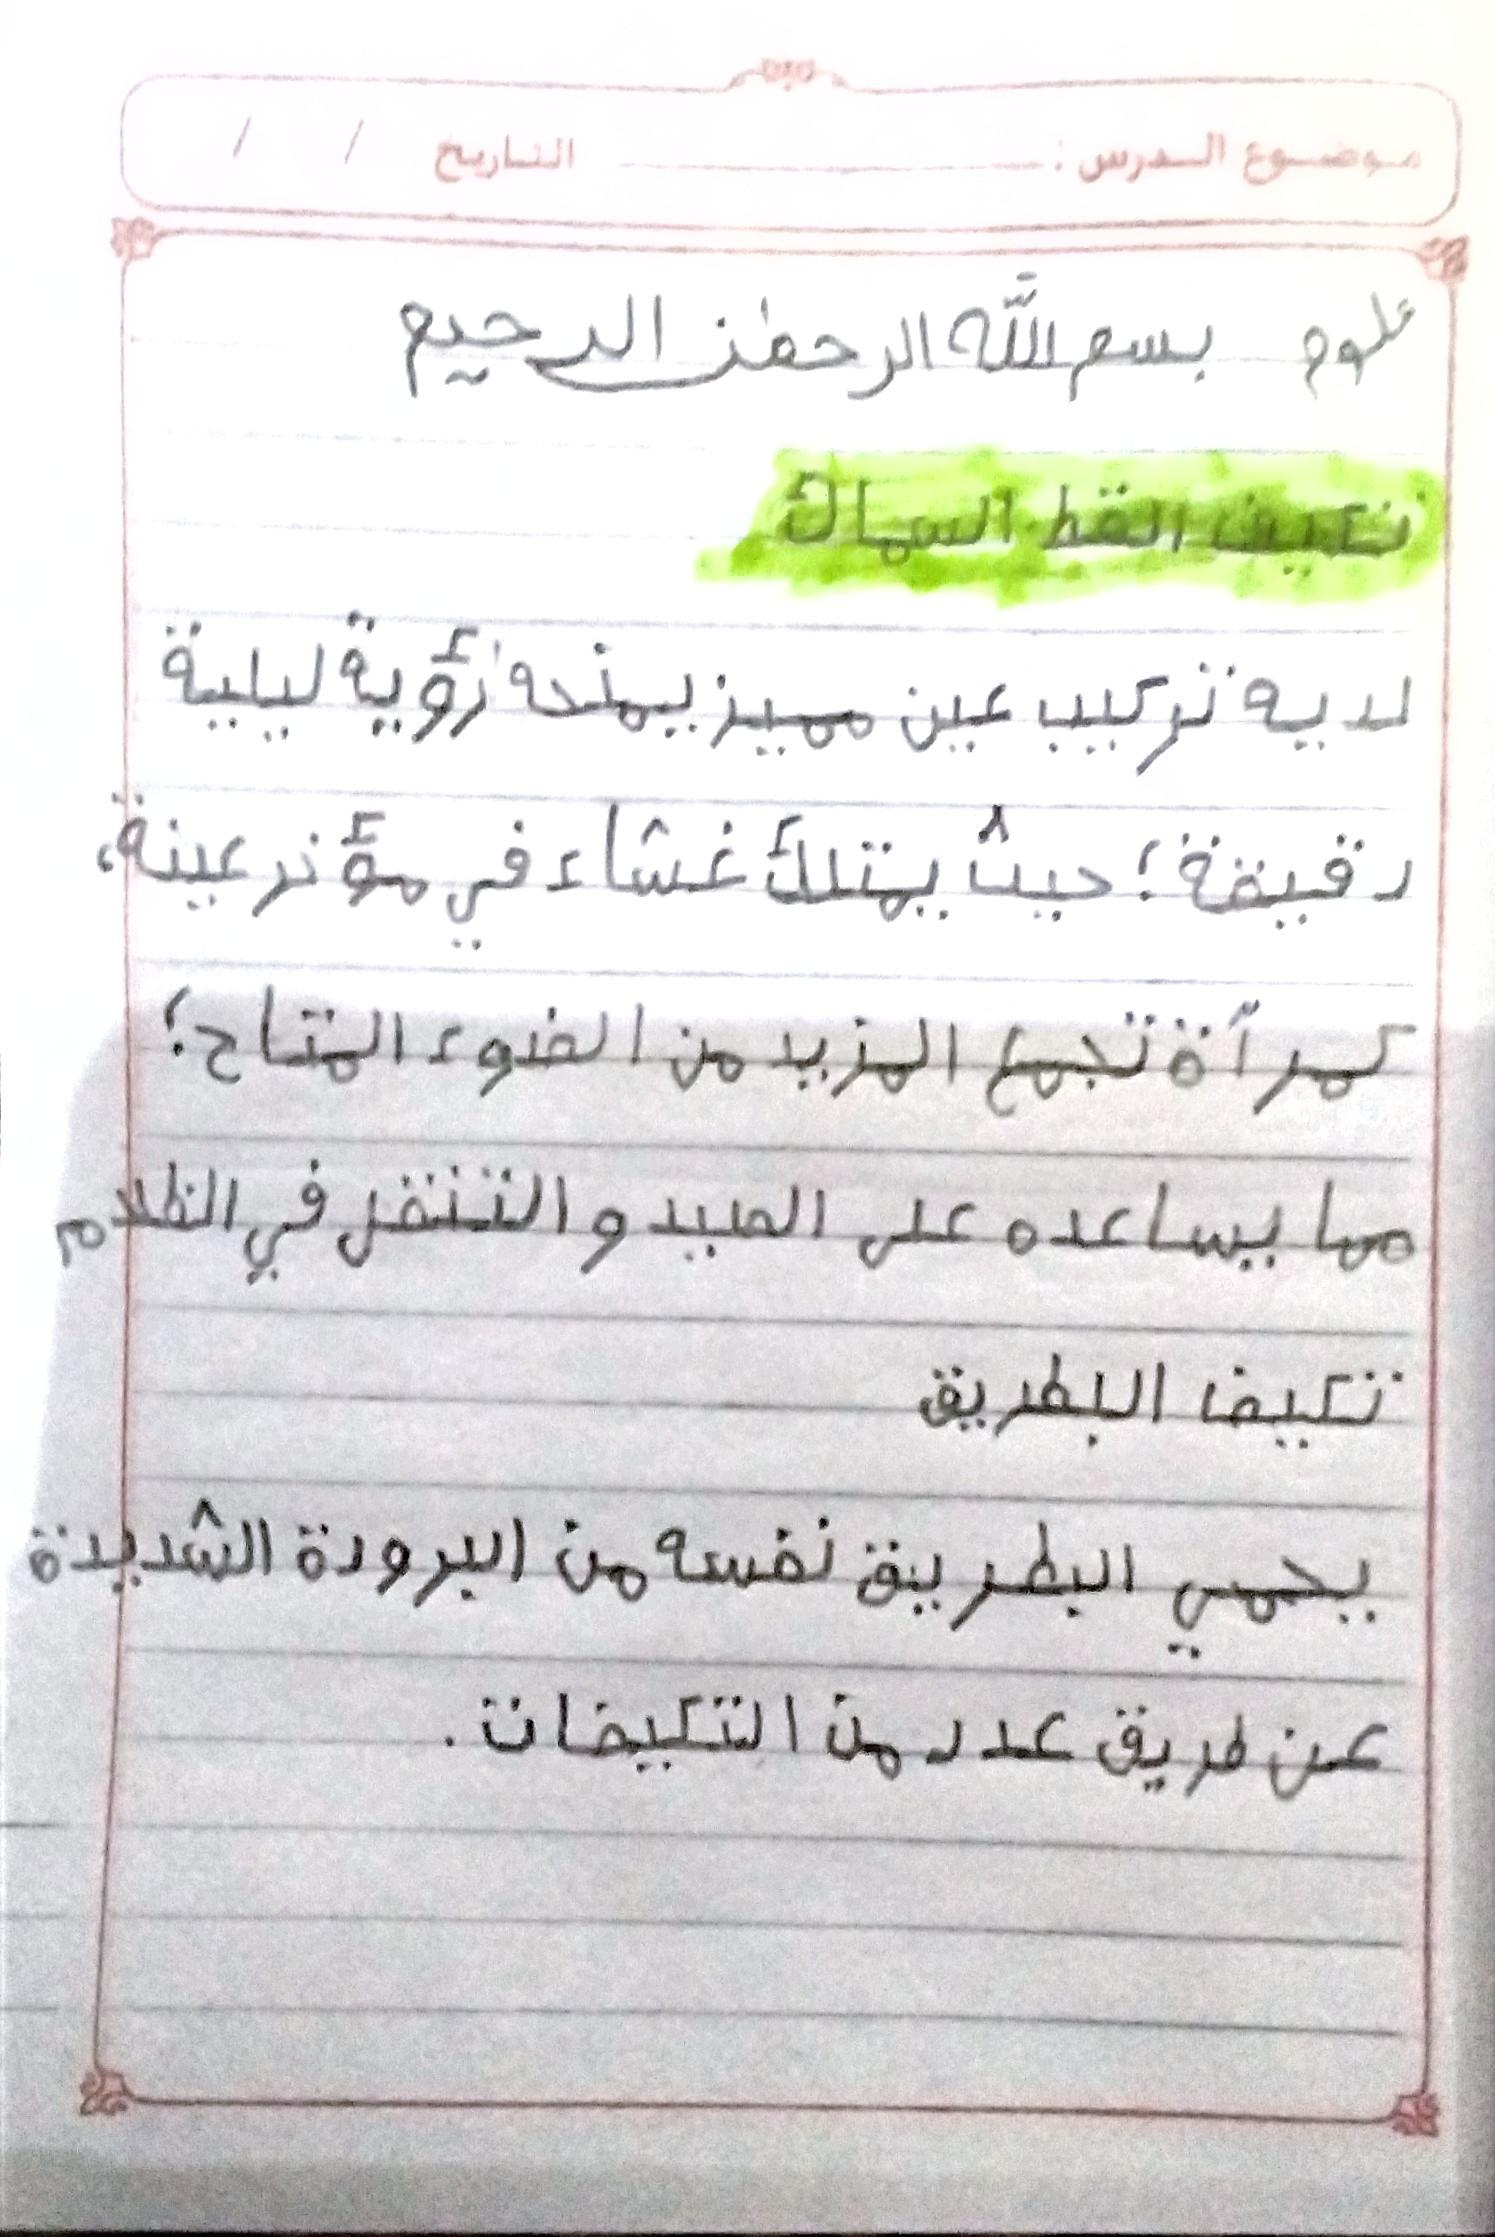 موضوع الدرس : التاريخ / /
علوم بسم اللّٰه الرحمٰن الرحيم
تكيف القط السماك
لديه تركيب عين مميز يمنحه رُؤية ليلية
دقيقة؛ حيث يمتلك غشاء في مؤخر عينة،
كمرآة تجمع المزيد من الضوء المتاح؛
مما يساعده على الصيد و التنقل في الظلام
تكيف البطريق
يحمي البطريق نفسه من البرودة الشديدة
عن طريق عدد من التكيفات.